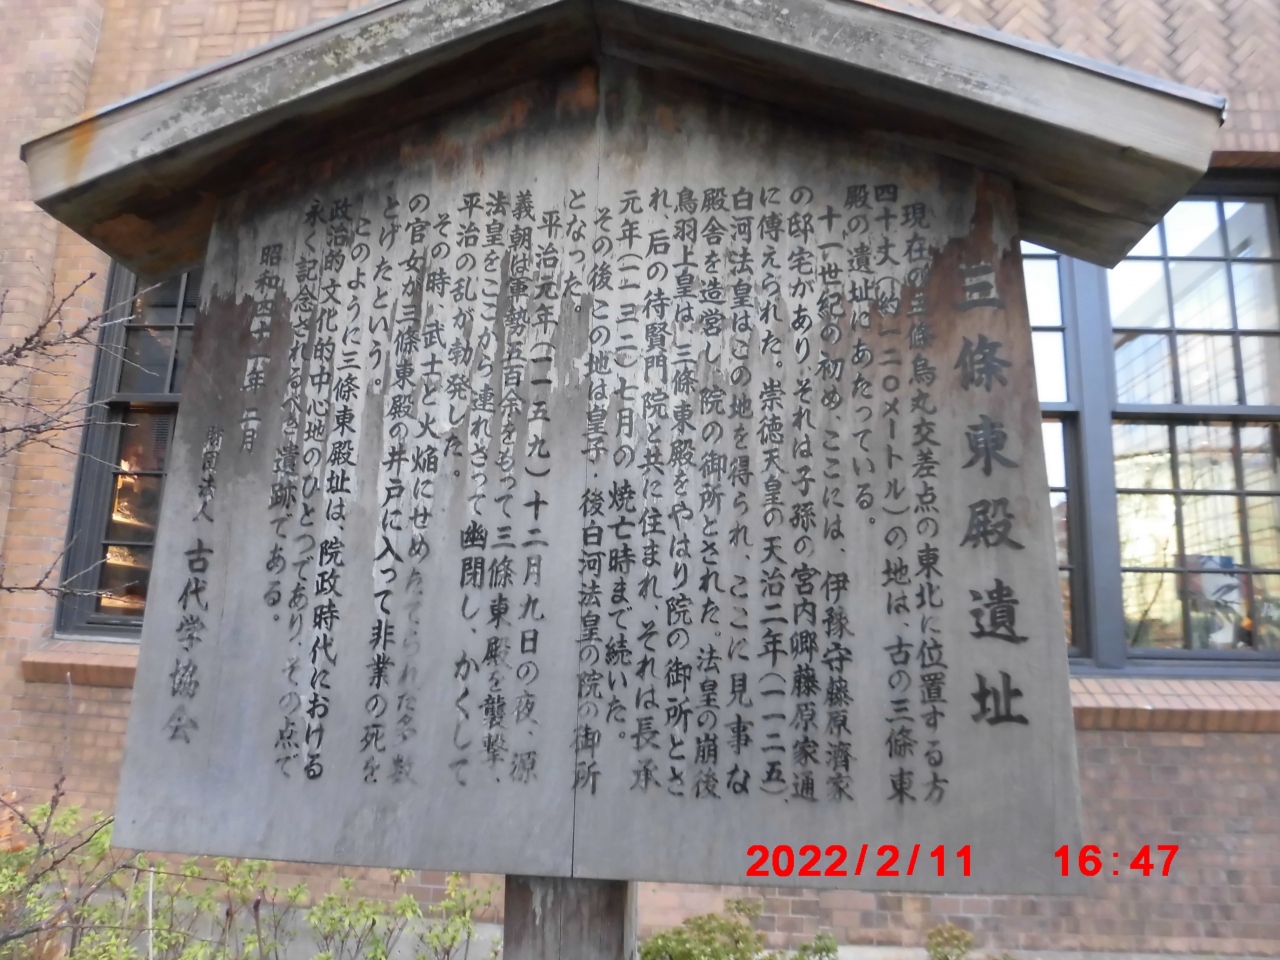 三條東殿遺址
現在の三條烏丸交差点の東北に位置する方
四十丈(約一二〇メートル)の地は、古の三條東
殿の遺址にあたっている。
十一世紀の初め、ここには、伊豫守藤原濟家
の邸宅があり、それは子孫の宮内卿藤原家通
に傳えられた。崇徳天皇の天治二年(一一二五)、
白河法皇はこの地を得られ、ここに見事な
殿舎を造営し、院の御所とされた。法皇の崩後
鳥羽上皇は、三條東殿をやはり院の御所とさ
れ、后の待賢門院と共に住まれ、それは長承
元年(一一三二)七月の焼亡時まで続いた。
その後この地は皇子・後白河法皇の院の御所
となった。
平治元年(一一五九)十二月九日の夜、源
義朝は軍勢五百余をもって三條東殿を襲撃、
法皇をここから連れさって幽閉し、かくして
平治の乱が勃発した。
その時、武士と火焔にせめたてられた多数
の官女が三條東殿の井戸に入って非業の死を
とげたという。
このように三條東殿址は、院政時代における
政治的文化的中心地のひとつであり、その点で
永く記念されるべき遺跡である。
昭和四十一年二月
財団法人 古代学協会
2022/2/11 16:47